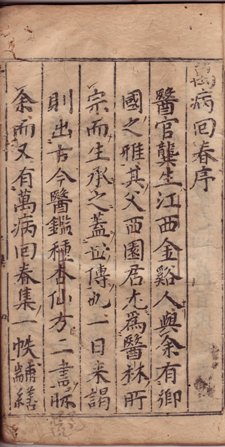 萬病回春序
醫官龔生江西金谿人與余有鄉
國之雅其父西園居尤爲醫林所
宗而生承之蓋世傳也一日来謁
則出古今醫鑑種杏仙方二書眎
余而又有萬病回春集一帙繕